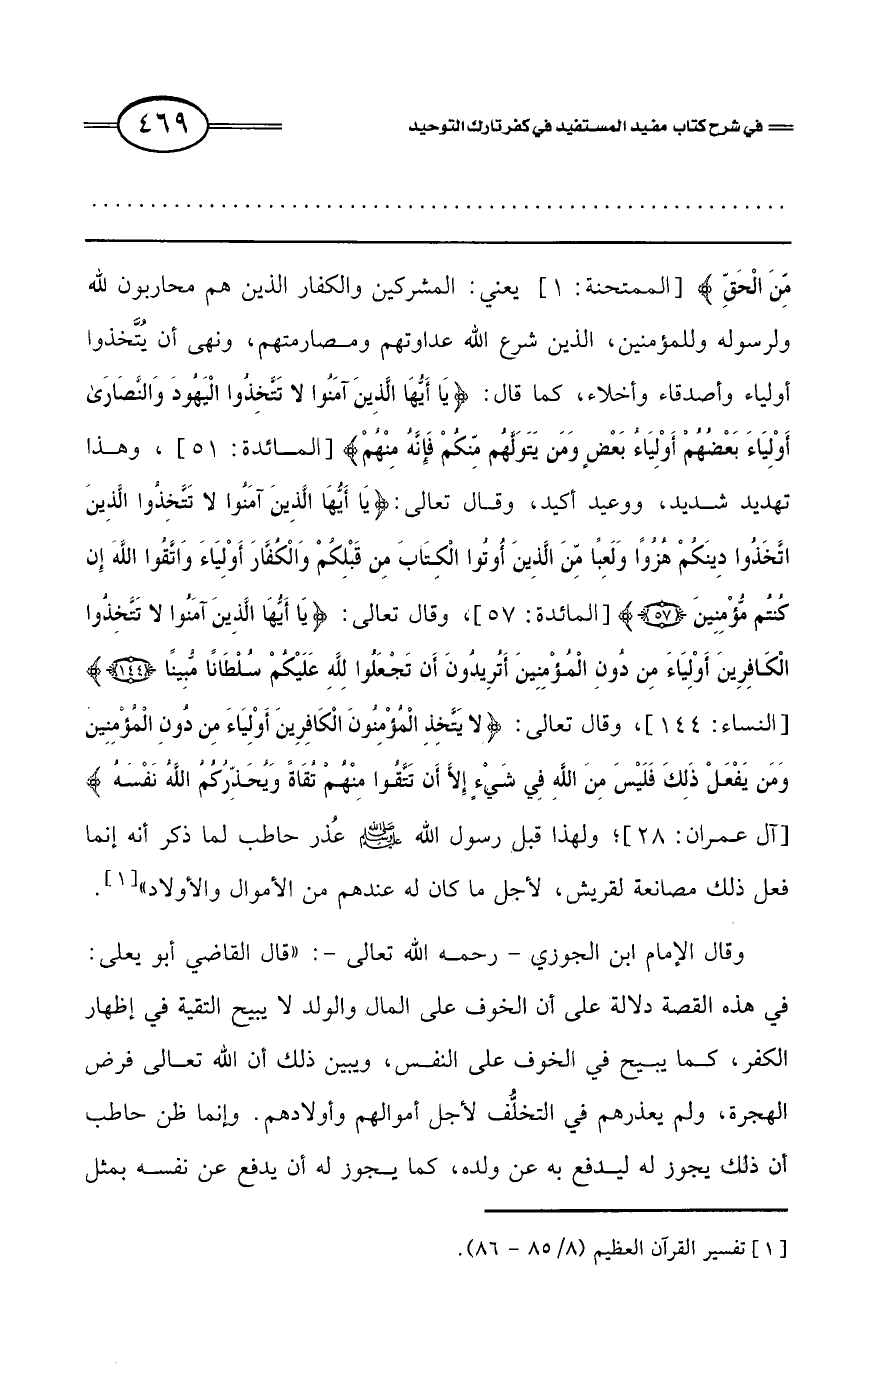 في شرح كتاب مفيد المستفيد في كفر تارك التوحيد ٤٦٩
مِّنَ الْحَقِّ ﴾ [الممتحنة: ١] يعني: المشركين والكفار الذين هم محاربون لله
ولرسوله وللمؤمنين، الذين شرع الله عداوتهم ومصارمتهم، ونهى أن يُتَّخذوا
أولياء وأصدقاء وأخلاء، كما قال: ﴿يَا أَيُّهَا الَّذِينَ آمَنُوا لا تَتَّخِذُوا الْيَهُودَ وَالنَّصَارَىٰ
أَوْلِيَاءَ بَعْضُهُمْ أَوْلِيَاءُ بَعْضٍ وَمَن يَتَوَلَّهُم مِّنكُمْ فَإِنَّهُ مِنْهُمْ﴾ [المائدة: ٥١] ، وهذا
تهديد شديد، ووعيد أكيد، وقال تعالى: ﴿يَا أَيُّهَا الَّذِينَ آمَنُوا لا تَتَّخِذُوا الَّذِينَ
اتَّخَذُوا دِينَكُمْ هُزُوًا وَلَعِبًا مِّنَ الَّذِينَ أُوتُوا الْكِتَابَ مِن قَبْلِكُمْ وَالْكُفَّارَ أَوْلِيَاءَ وَاتَّقُوا اللَّهَ إِن
كُنتُم مُّؤْمِنِينَ ﴿٥٧﴾﴾ [المائدة: ٥٧]، وقال تعالى: ﴿يَا أَيُّهَا الَّذِينَ آمَنُوا لا تَتَّخِذُوا
الْكَافِرِينَ أَوْلِيَاءَ مِن دُونِ الْمُؤْمِنِينَ أَتُرِيدُونَ أَن تَجْعَلُوا لِلَّهِ عَلَيْكُمْ سُلْطَانًا مُّبِينًا ﴿١٤٤﴾﴾
[النساء: ١٤٤]، وقال تعالى: ﴿لا يَتَّخِذِ الْمُؤْمِنُونَ الْكَافِرِينَ أَوْلِيَاءَ مِن دُونِ الْمُؤْمِنِينَ
وَمَن يَفْعَلْ ذَلِكَ فَلَيْسَ مِنَ اللَّهِ فِي شَيْءٍ إِلاَّ أَن تَتَّقُوا مِنْهُمْ تُقَاةً وَيُحَذِّرُكُمُ اللَّهُ نَفْسَهُ ﴾
[آل عمران: ٢٨]؛ ولهذا قبل رسول الله ﷺ عُذر حاطب لما ذكر أنه إنما
فعل ذلك مصانعة لقريش، لأجل ما كان له عندهم من الأموال والأولاد»[١].
وقال الإمام ابن الجوزي - رحمه الله تعالى -: «قال القاضي أبو يعلى:
في هذه القصة دلالة على أن الخوف على المال والولد لا يبيح التقية في إظهار
الكفر، كما يبيح في الخوف على النفس، ويبين ذلك أن الله تعالى فرض
الهجرة، ولم يعذرهم في التخلُّف لأجل أموالهم وأولادهم. وإنما ظن حاطب
أن ذلك يجوز له ليدفع به عن ولده، كما يجوز له أن يدفع عن نفسه بمثل
[١] تفسير القرآن العظيم (٨/ ٨٥ - ٨٦).